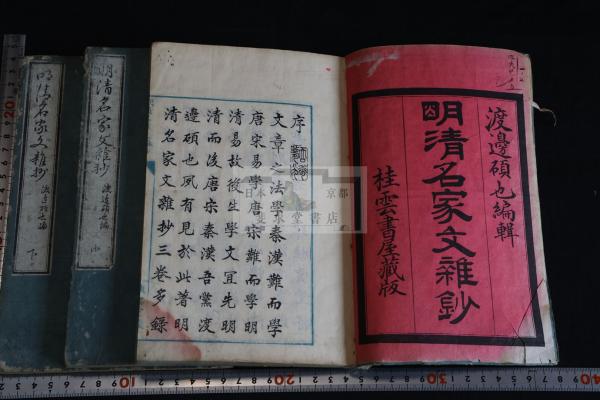 渡邊碩也編輯
明清名家文雜鈔
桂雲書屋藏版
序
文章之法學秦漢難而學
唐宋易學唐宋難而學明
清易故後生學文宜先明
清而後唐宋秦漢吾黨渡
邊碩也夙有見於此著明
清名家文雜鈔三卷多錄
明清名家文雜抄
渡邊碩也編
明清名家文雜抄
渡邊碩也編
下
日本
京都
堂書店
10
20
30
40
20